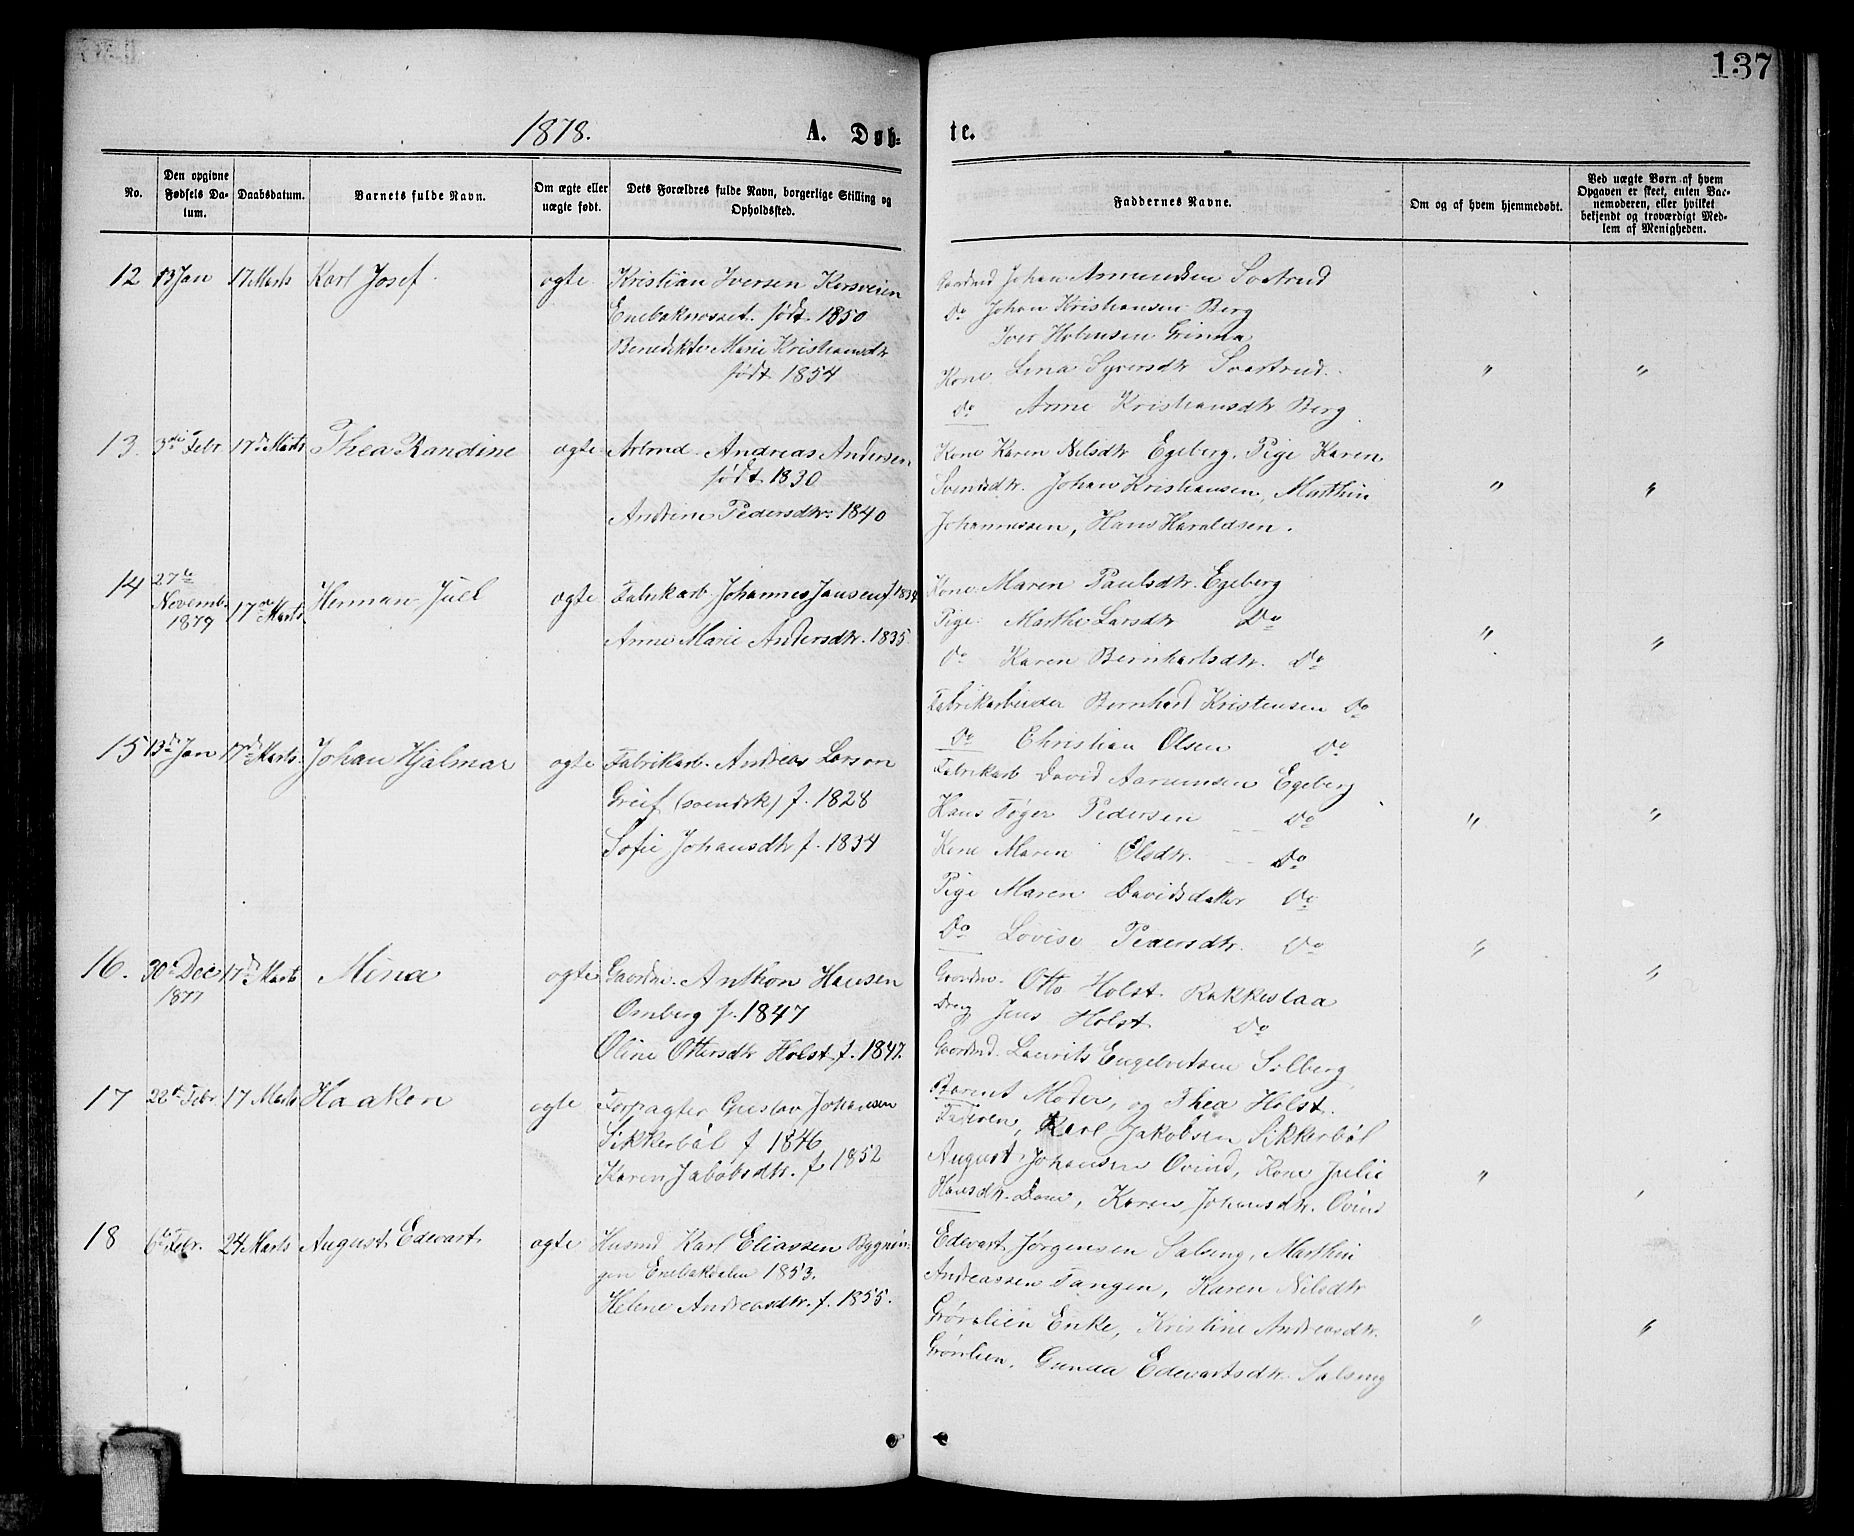 137
1878. A. Døb- te.
No.
Den opgivne Fødsels Da- tum.
Daabsdatum.
Barnets fulde Navn.
Om ægte eller uægte født.
Dets Forældres fulde Navn, borgerlige Stilling og Opholdssted.
Faddernes Navne.
Om og af hvem hjemmedøbt.
Ved uægte Børn af hvem Opgaven er skeet, enten Bar- nemoderen, eller hvilket bekjendt og troværdigt Med- lem af Menigheden.
12 13 Jan 17 Marts Karl Josef. ogte. Kristian Iversen
Enebaknesset. født. 1850
Benedikte Marie Kristiansdtr
født 1854
Johan Asmundsen Svartrud
Do Johan Kristiansen Berg
Iver Holmsen
Kone Lina Syversdtr Svartrud. " "
Do Anne Kristiansdtr Berg
13. 3die Febr 17de Marts Thea Randine ogte Arbmd. Andreas Andersen
født. 1830
Andrine Pedersdtr. 1840
Kone Karen Nilsdtr Egeberg. Pige Karen
Svendsdtr. Johan Kristiansen, Marthin " "
Johannessen, Hans Haraldsen.
14 27de Novemb. 1879 17de Marts Herman Juel ogte Fabrikarb Johannes Jansen f 1834
Anne Marie Andersdtr. 1835.
Kone Maren Paulsdtr. Egeberg
Pige Marthe Larsdtr Do " "
Do Karen Bernhartsdtr. Do
Fabrikarbeider Bernhard Kristensen Do
Do Christian Olsen Do
15 13de Jan 17de Marts. Johan Hjalmar ogte Fabrikarb. Andreas Larson
Greif (svendsk) f. 1828
Sofie Johansdtr f. 1834
Fabrikarb David Egeberg
Hans Pedersen Do " "
Kone Maren Olsdtr. Do
Pige Maren Davidsdaker Do
Do Lovise Pedersdtr. Do
16. 30te Dec 1877 17de Marts Mina ogte Gaardm. Anthon Hansen
Omberg f. 1847
Oline Ottersdtr Holst f. 1847.
" "
Gaardm. Otto Holst. Rakkestaa
Dreng Jens Holst Do
Gaardmd. Laurits Engebretsen Solberg
Barnets Moder, og Thea Holst.
17 22de Febr 17 Marts Haaken ogte Forpagter Gustav Johansen
Sikkerbøl f 1846
Karen Jabobsdtr. f 1852
Faderen, Karl Jakobsen Sikkerbøl
August Johansen Ovind, Kone Julie "
Hansdtr. Dom, Karen Johansdtr. Ovind
18 6te Febr. 24 Marts August Edevart ogte Husmd Karl Eliassen Bygnin-
gen Enebakdalen 1853.
Helene Andreasdtr. f. 1855.
Edevart Jørgensen Salsing, Marthin
Andreassen Tangen, Karen Nilsdtr
Grønlien Enke, Kristine Andreasdtr. " "
Grønlien, Gunda Edevartsdtr. Salsing